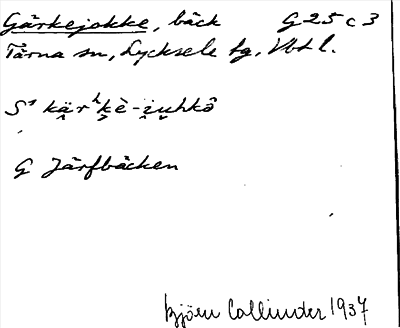 Gärkejokke, bäck G 25 c 3
Tärna sn, Lycksele tg, Vbt l.
Sˢ kä̭rʰk̭è-i̭ṷhkȏ
G Järfbäcken
Björn Collinder 1937